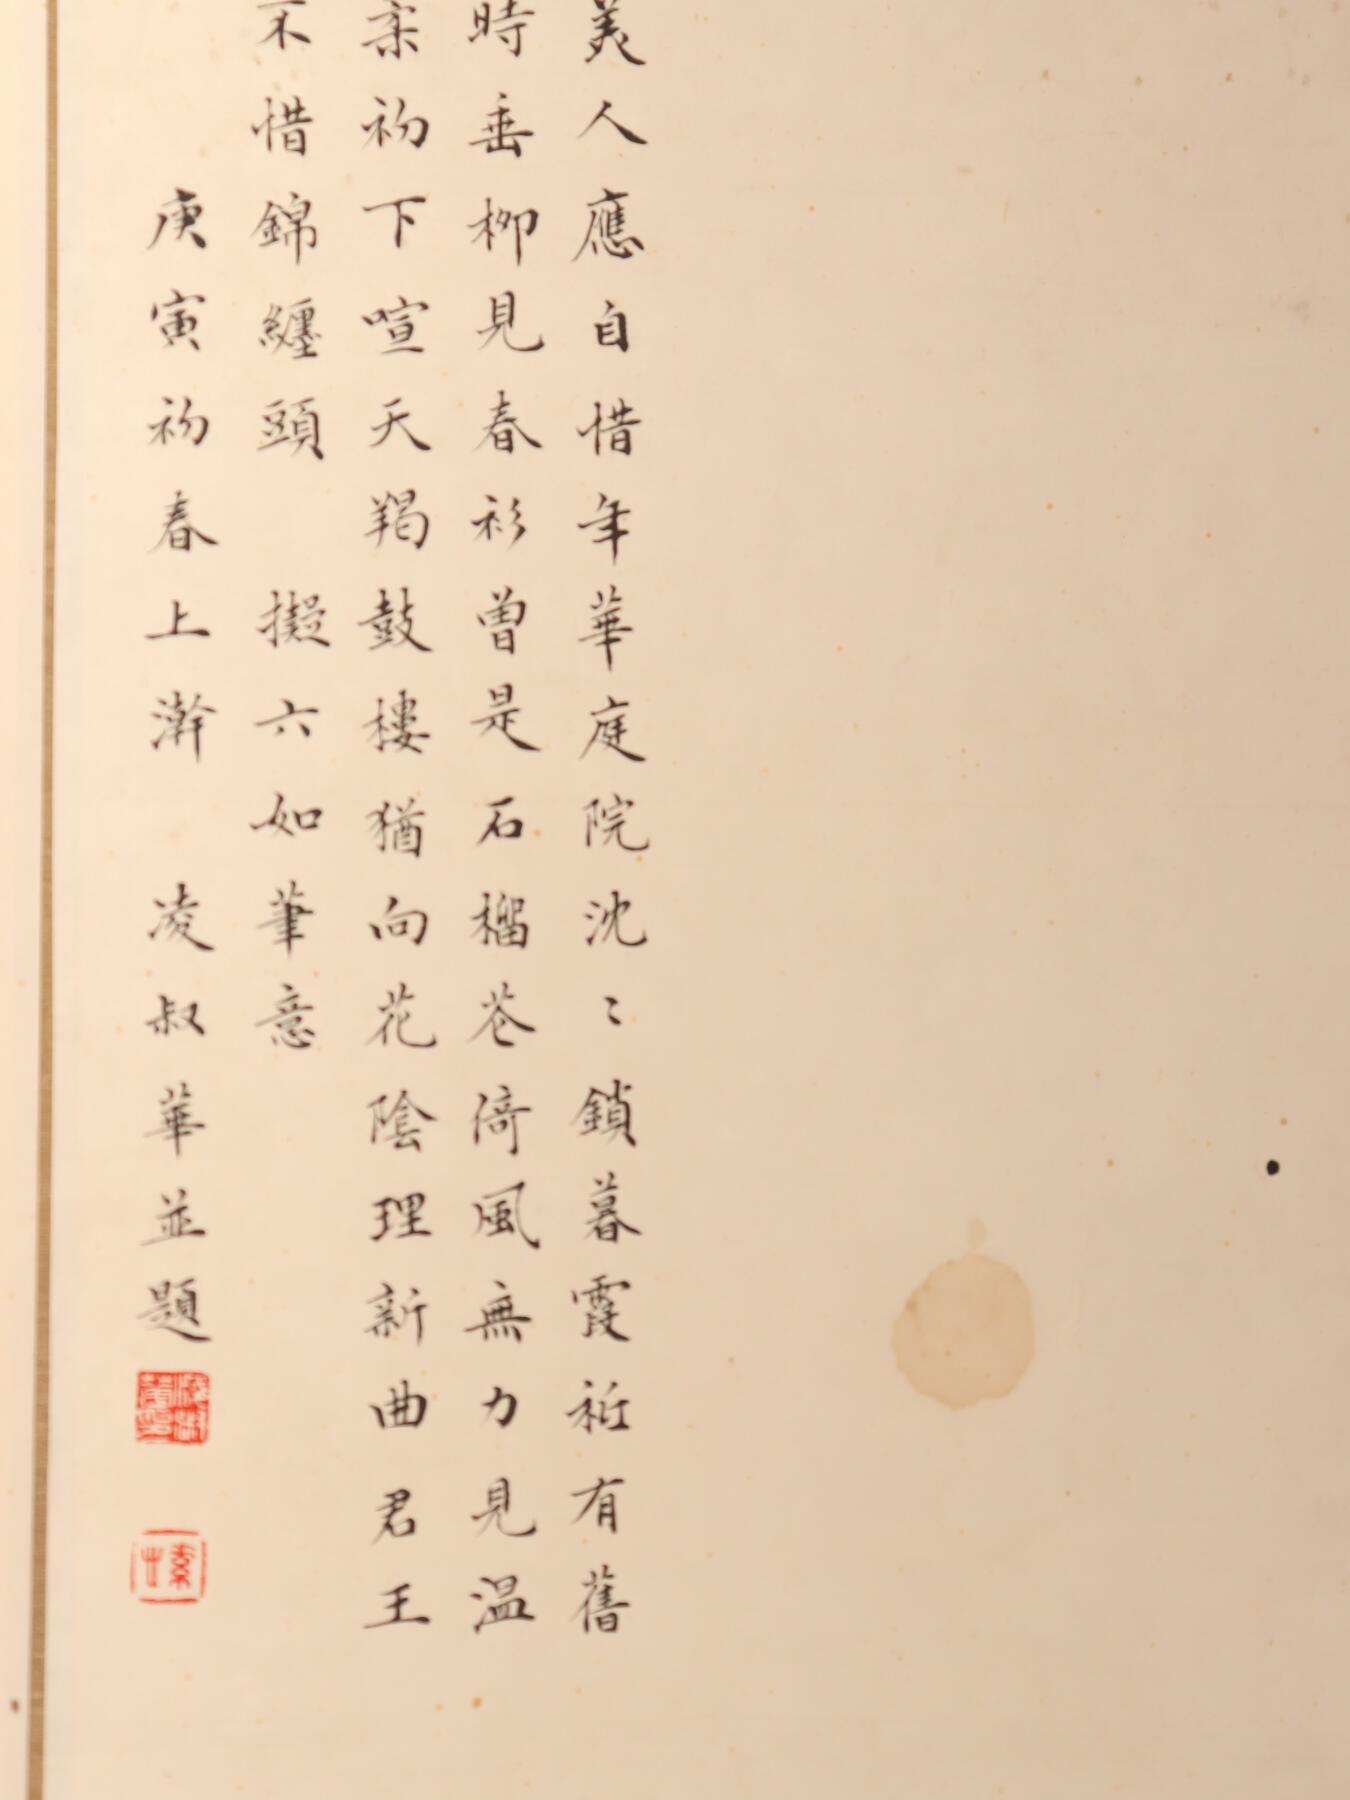 美人應自惜年華庭院沈〻鎖暮霞祇有舊
時垂柳見春衫曾是石榴花倚風無力見温
柔初下喧天羯鼓樓猶向花陰理新曲君王
不惜錦纏頭 擬六如筆意
庚寅初春上澣 凌叔華並題
凌叔華印
素之